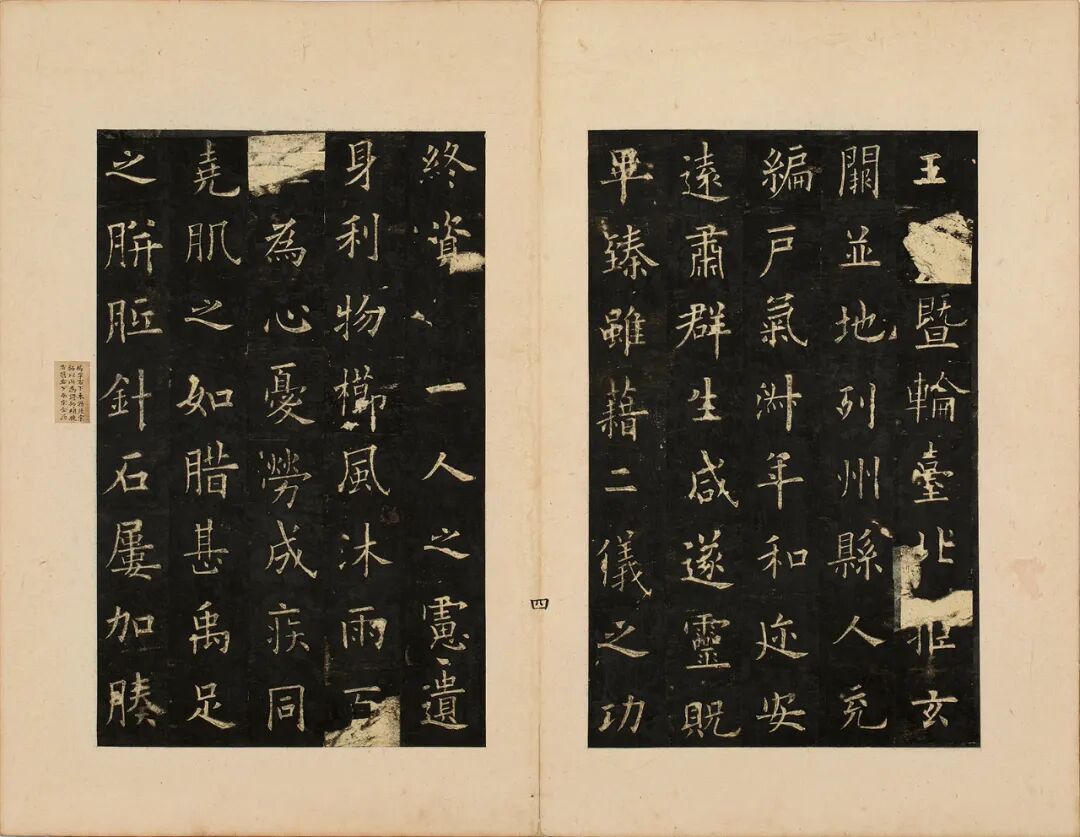 王暨輪臺北拒玄
闕並地列州縣人充
編戶氣淑年和迩安
遠肅群生咸遂靈貺
畢臻雖藉二儀之功
四
終資一人之慮遺
身利物櫛風沐雨百
為心憂勞成疾同
堯肌之如腊甚禹足
之胼胝針石屢加腠